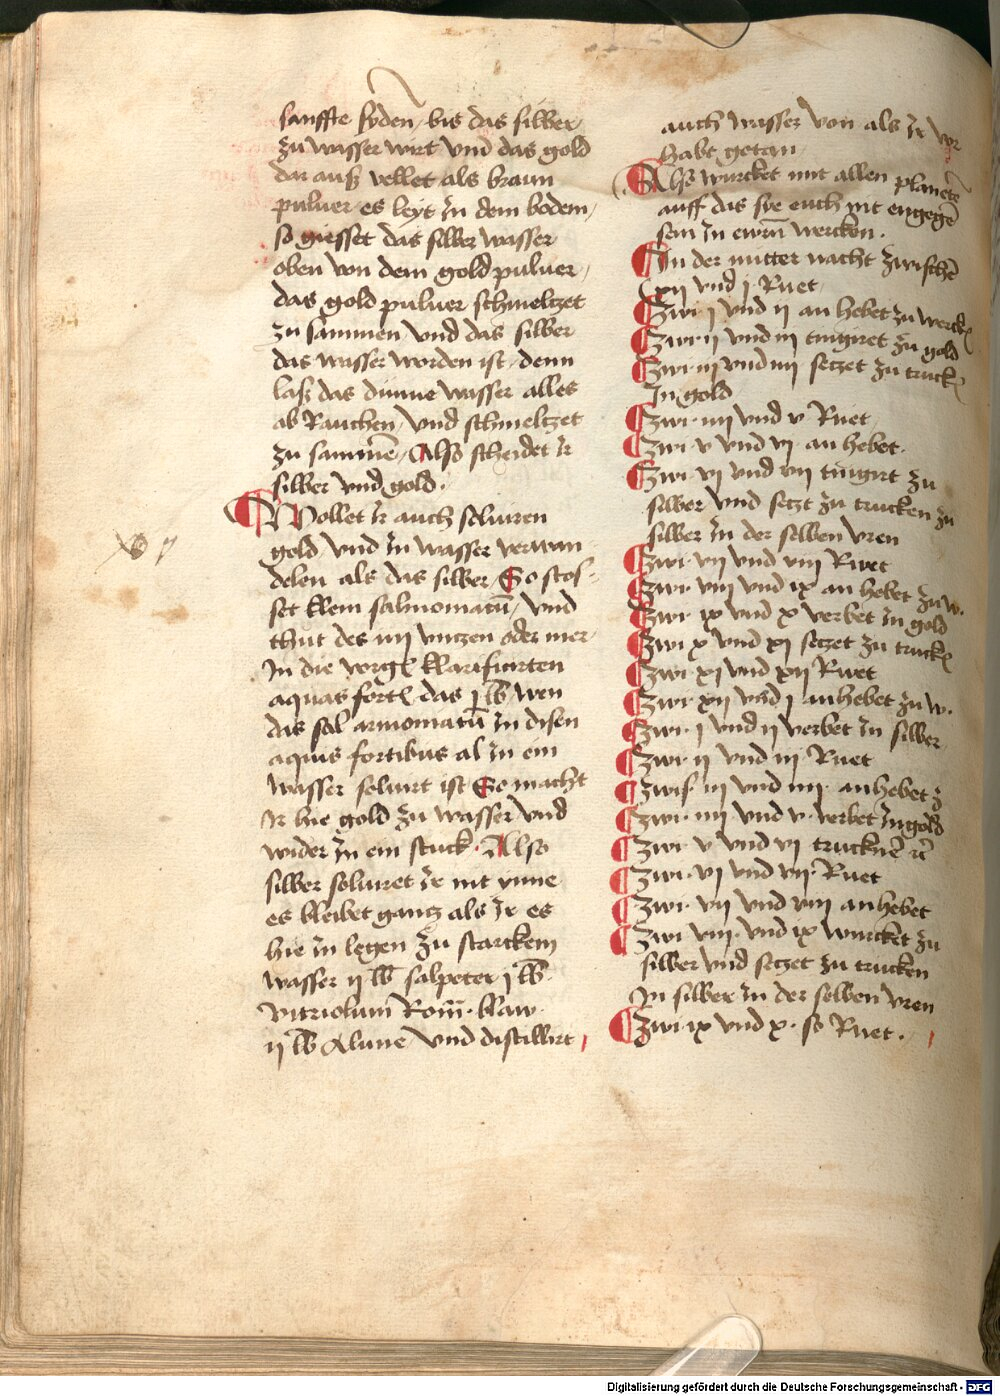 sanffte syden, bis das silber
zu wasser wirt vnd das gold
dar auß vellet als braun
puluer es leyt in dem bodem,
so giesset das silber wasser
oben von dem gold puluer,
das gold puluer schmeltzet
zu sammen vnd das silber
das wasser worden ist, denn
laß das dinne wasser alles
ab Rauchen, vnd schmeltzet
zu sammē, Also scheidet ir
silber vnd gold.
Wollet ir auch soluiren
gold vnd in wasser verwan
delen als das silber, So stos-
set klein salmoniatū, vnd
thut des iiij vntzen oder mer
In die vorg klarificirten
aquas fort das j lb wen
das sal armoniatū in disen
aquis fortibus al in ein
wasser soluirt ist So macht
Ir hie gold zu wasser vnd
wider in ein stuck. Also
silber soluiret ir nit ynne
es bleibet gantz als ir es
hie in legen zu starckem
wasser ij lb salpeter j lb
vitriolum Rom̄. blaw.
ij lb Alune vnd distillirt
auch wasser von als ir vor
habt getan
Also wurcket mit allen planetē
auff das sye euch nit engegē
sein in ewrn̄ wercken.
In der mitter nacht zwischē
xij vnd j Ruet
Zwi j vnd ij an hebet zu werck
Zwi ij vnd iij tingiret zu gold
Zwi iij vnd iiij setzet zu truck
In gold
Zwi iiij vnd v Ruet
Zwi v vnd vj an hebet.
Zwi vj vnd vij tingirt zu
silber vnd setzt zu trucken zu
silber in der selben vren
Zwi vij vnd viij Ruet
Zwi viij vnd ix an hebet zu w.
Zwi ix vnd x verbet in gold
Zwi x vnd xj setzet zu truck
Zwi xj vnd xij Ruet
Zwi xij vnd j anhebet zu w.
Zwi j vnd ij verbet in silber
Zwi ij vnd iij Ruet
Zwis iij vnd iiij anhebet z
Zwi iiij vnd v verbet in gold
Zwi v vnd vj trucknē
Zwi vj vnd vij Ruet
Zwi vij vnd viij anhebet
Zwi viij vnd ix wurcket zu
silber vnd setzet zu trucken
In silber in der selben vren
Zwi ix vnd x. so Ruet.
Digitalisierung gefördert durch die Deutsche Forschungsgemeinschaft - DFG